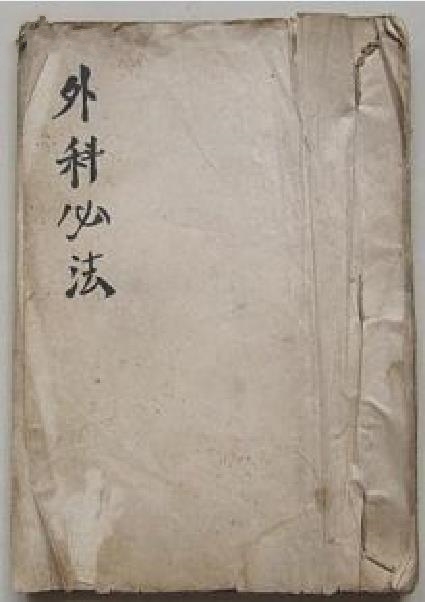 外科必法